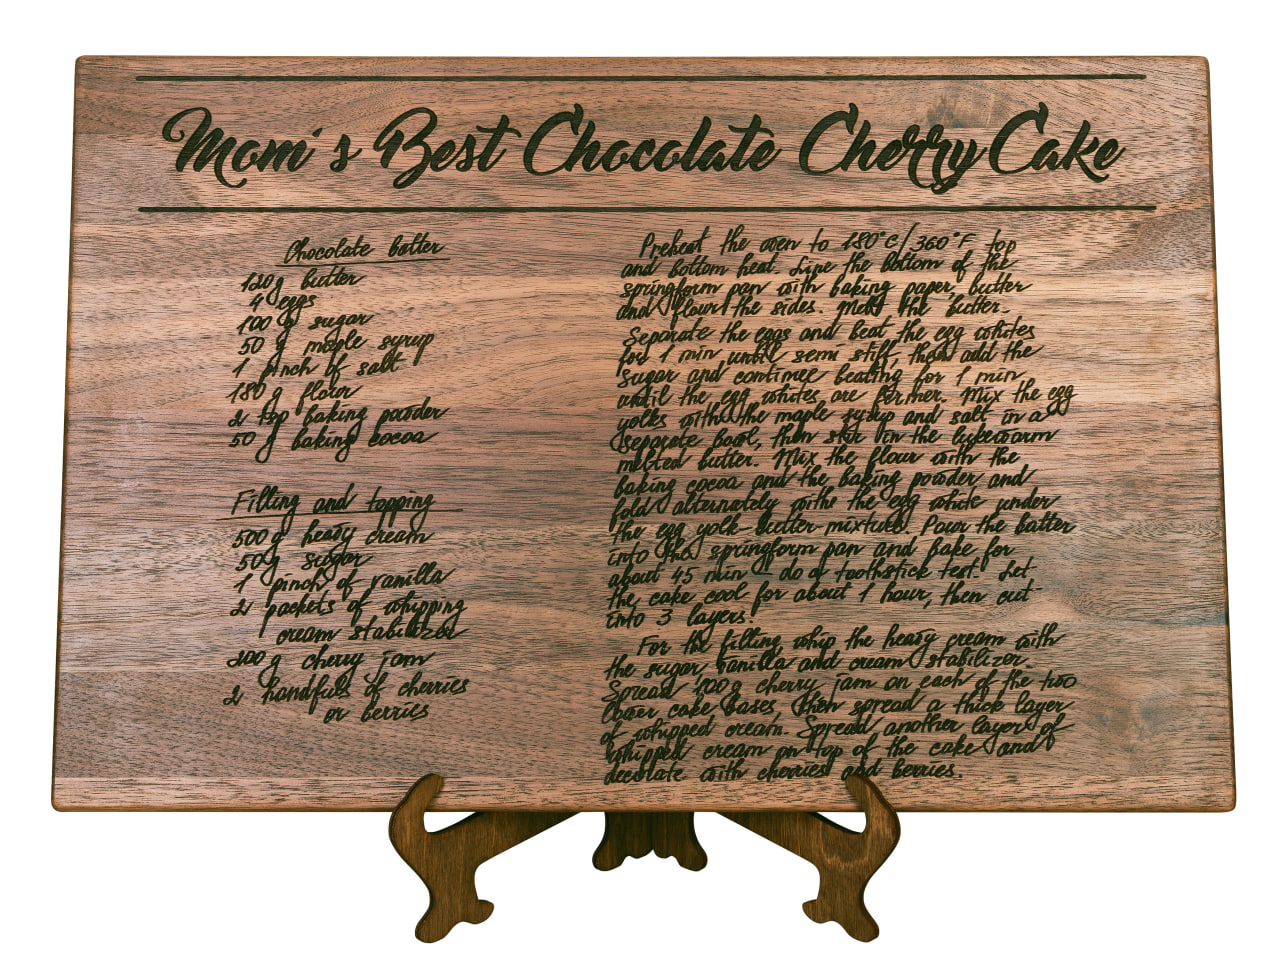 Mom's Best Chocolate Cherry Cake
Chocolate batter
120 g butter
4 eggs
100 g sugar
50 g maple syrup
1 pinch of salt
180 g flour
2 tsp baking powder
50 g baking cocoa
Filling and topping
500 g heavy cream
50 g sugar
1 pinch of vanilla
2 packets of whipping
cream stabilizer
200 g cherry jam
2 handfuls of cherries
or berries
Preheat the oven to 180°C/360°F top
and bottom heat. Line the bottom of the
springform pan with baking paper, butter
and flour the sides. Melt the butter.
Separate the eggs and beat the egg whites
for 1 min until semi stiff, then add the
sugar and continue beating for 1 min
until the egg whites are firmer. Mix the egg
yolks with the maple syrup and salt in a
separate bowl, then stir in the lukewarm
melted butter. Mix the flour with the
baking cocoa and the baking powder and
fold alternately withe the egg white under
the egg yolk-butter-mixture. Pour the batter
into the springform pan and bake for
about 45 min - do a toothstick test. Let
the cake cool for about 1 hour, then cut
into 3 layers.
For the filling whip the heavy cream with
the sugar, vanilla and cream stabilizer.
Spread 100 g cherry jam on each of the two
lower cake bases, then spread a thick layer
of whipped cream. Spread another layer of
whipped cream on top of the cake and
decolate with cherries and berries.